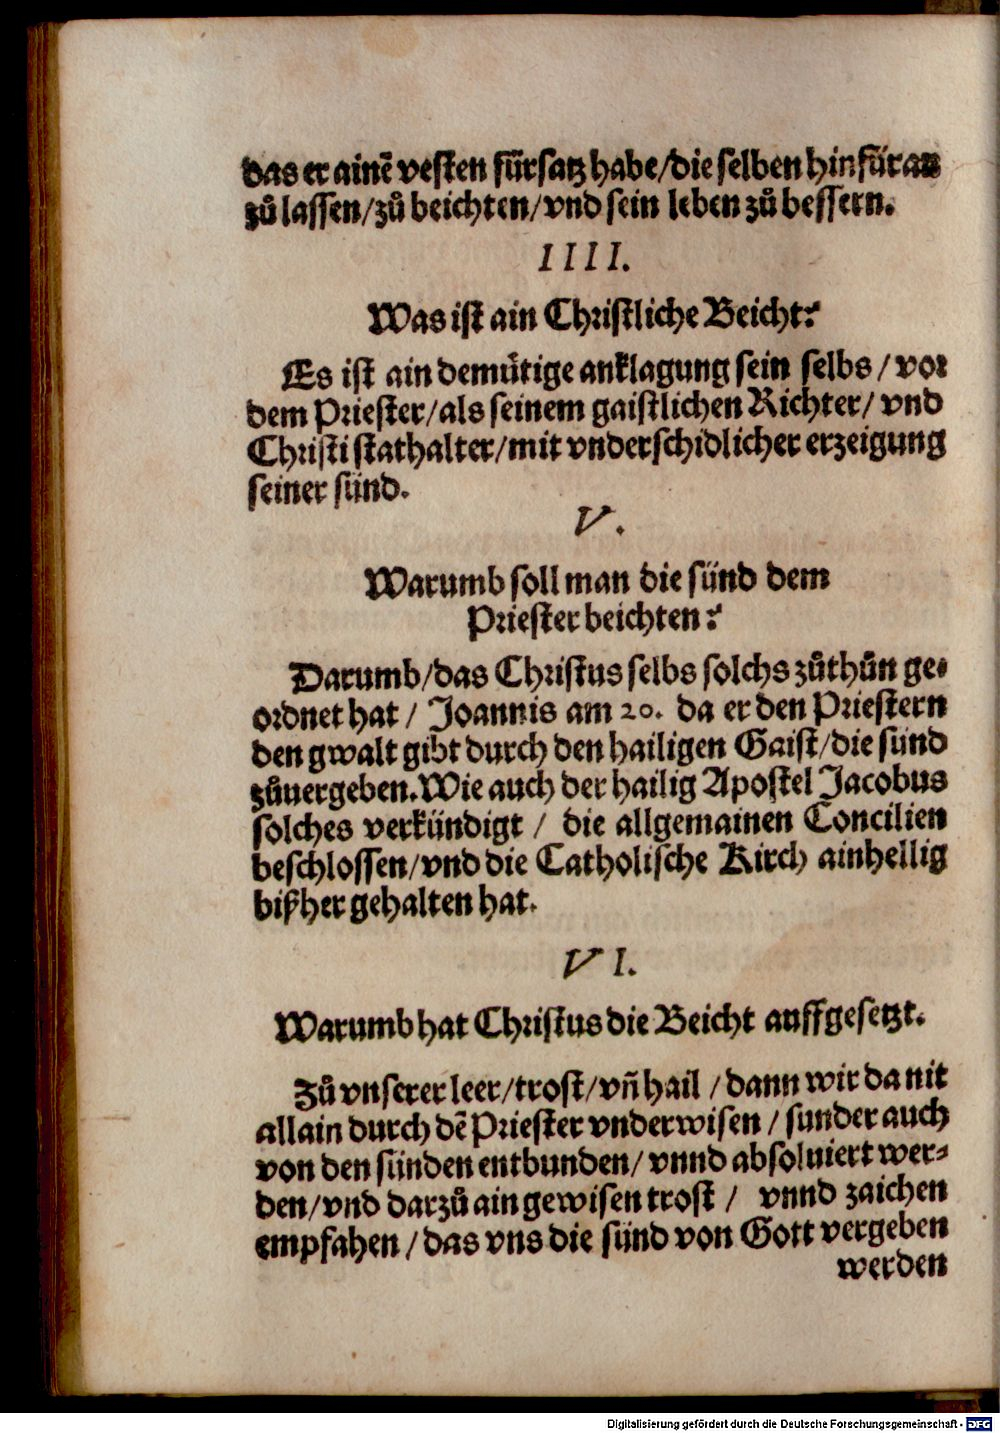 das er ainē vesten fürsatz habe/die selben hinfüran
zů lassen/zů beichten/vnd sein leben zů bessern.
IIII.
Was ist ain Christliche Beicht?
Es ist ain demütige anklagung sein selbs/vor
dem Priester/als seinem gaistlichen Richter/vnd
Christi stathalter/mit vnderschidlicher erzeigung
seiner sünd.
V.
Warumb soll man die sünd dem
Priester beichten?
Darumb/das Christus selbs solchs zůthůn ge-
ordnet hat/Joannis am 20. da er den Priestern
den gwalt gibt durch den hailigen Gaist/die sünd
zůuergeben. Wie auch der hailig Apostel Jacobus
solches verkündigt/die allgemainen Concilien
beschlossen/vnd die Catholische Kirch ainhellig
bißher gehalten hat.
VI.
Warumb hat Christus die Beicht auffgesetzt.
Zů vnserer leer/trost/vñ hail/dann wir da nit
allain durch dē Priester vnderwisen/sunder auch
von den sünden entbunden/vnnd absoluiert wer-
den/vnd darzů ain gewisen trost/vnnd zaichen
empfahen/das vns die sünd von Gott vergeben
werden
Digitalisierung gefördert durch die Deutsche Forschungsgemeinschaft - DFG